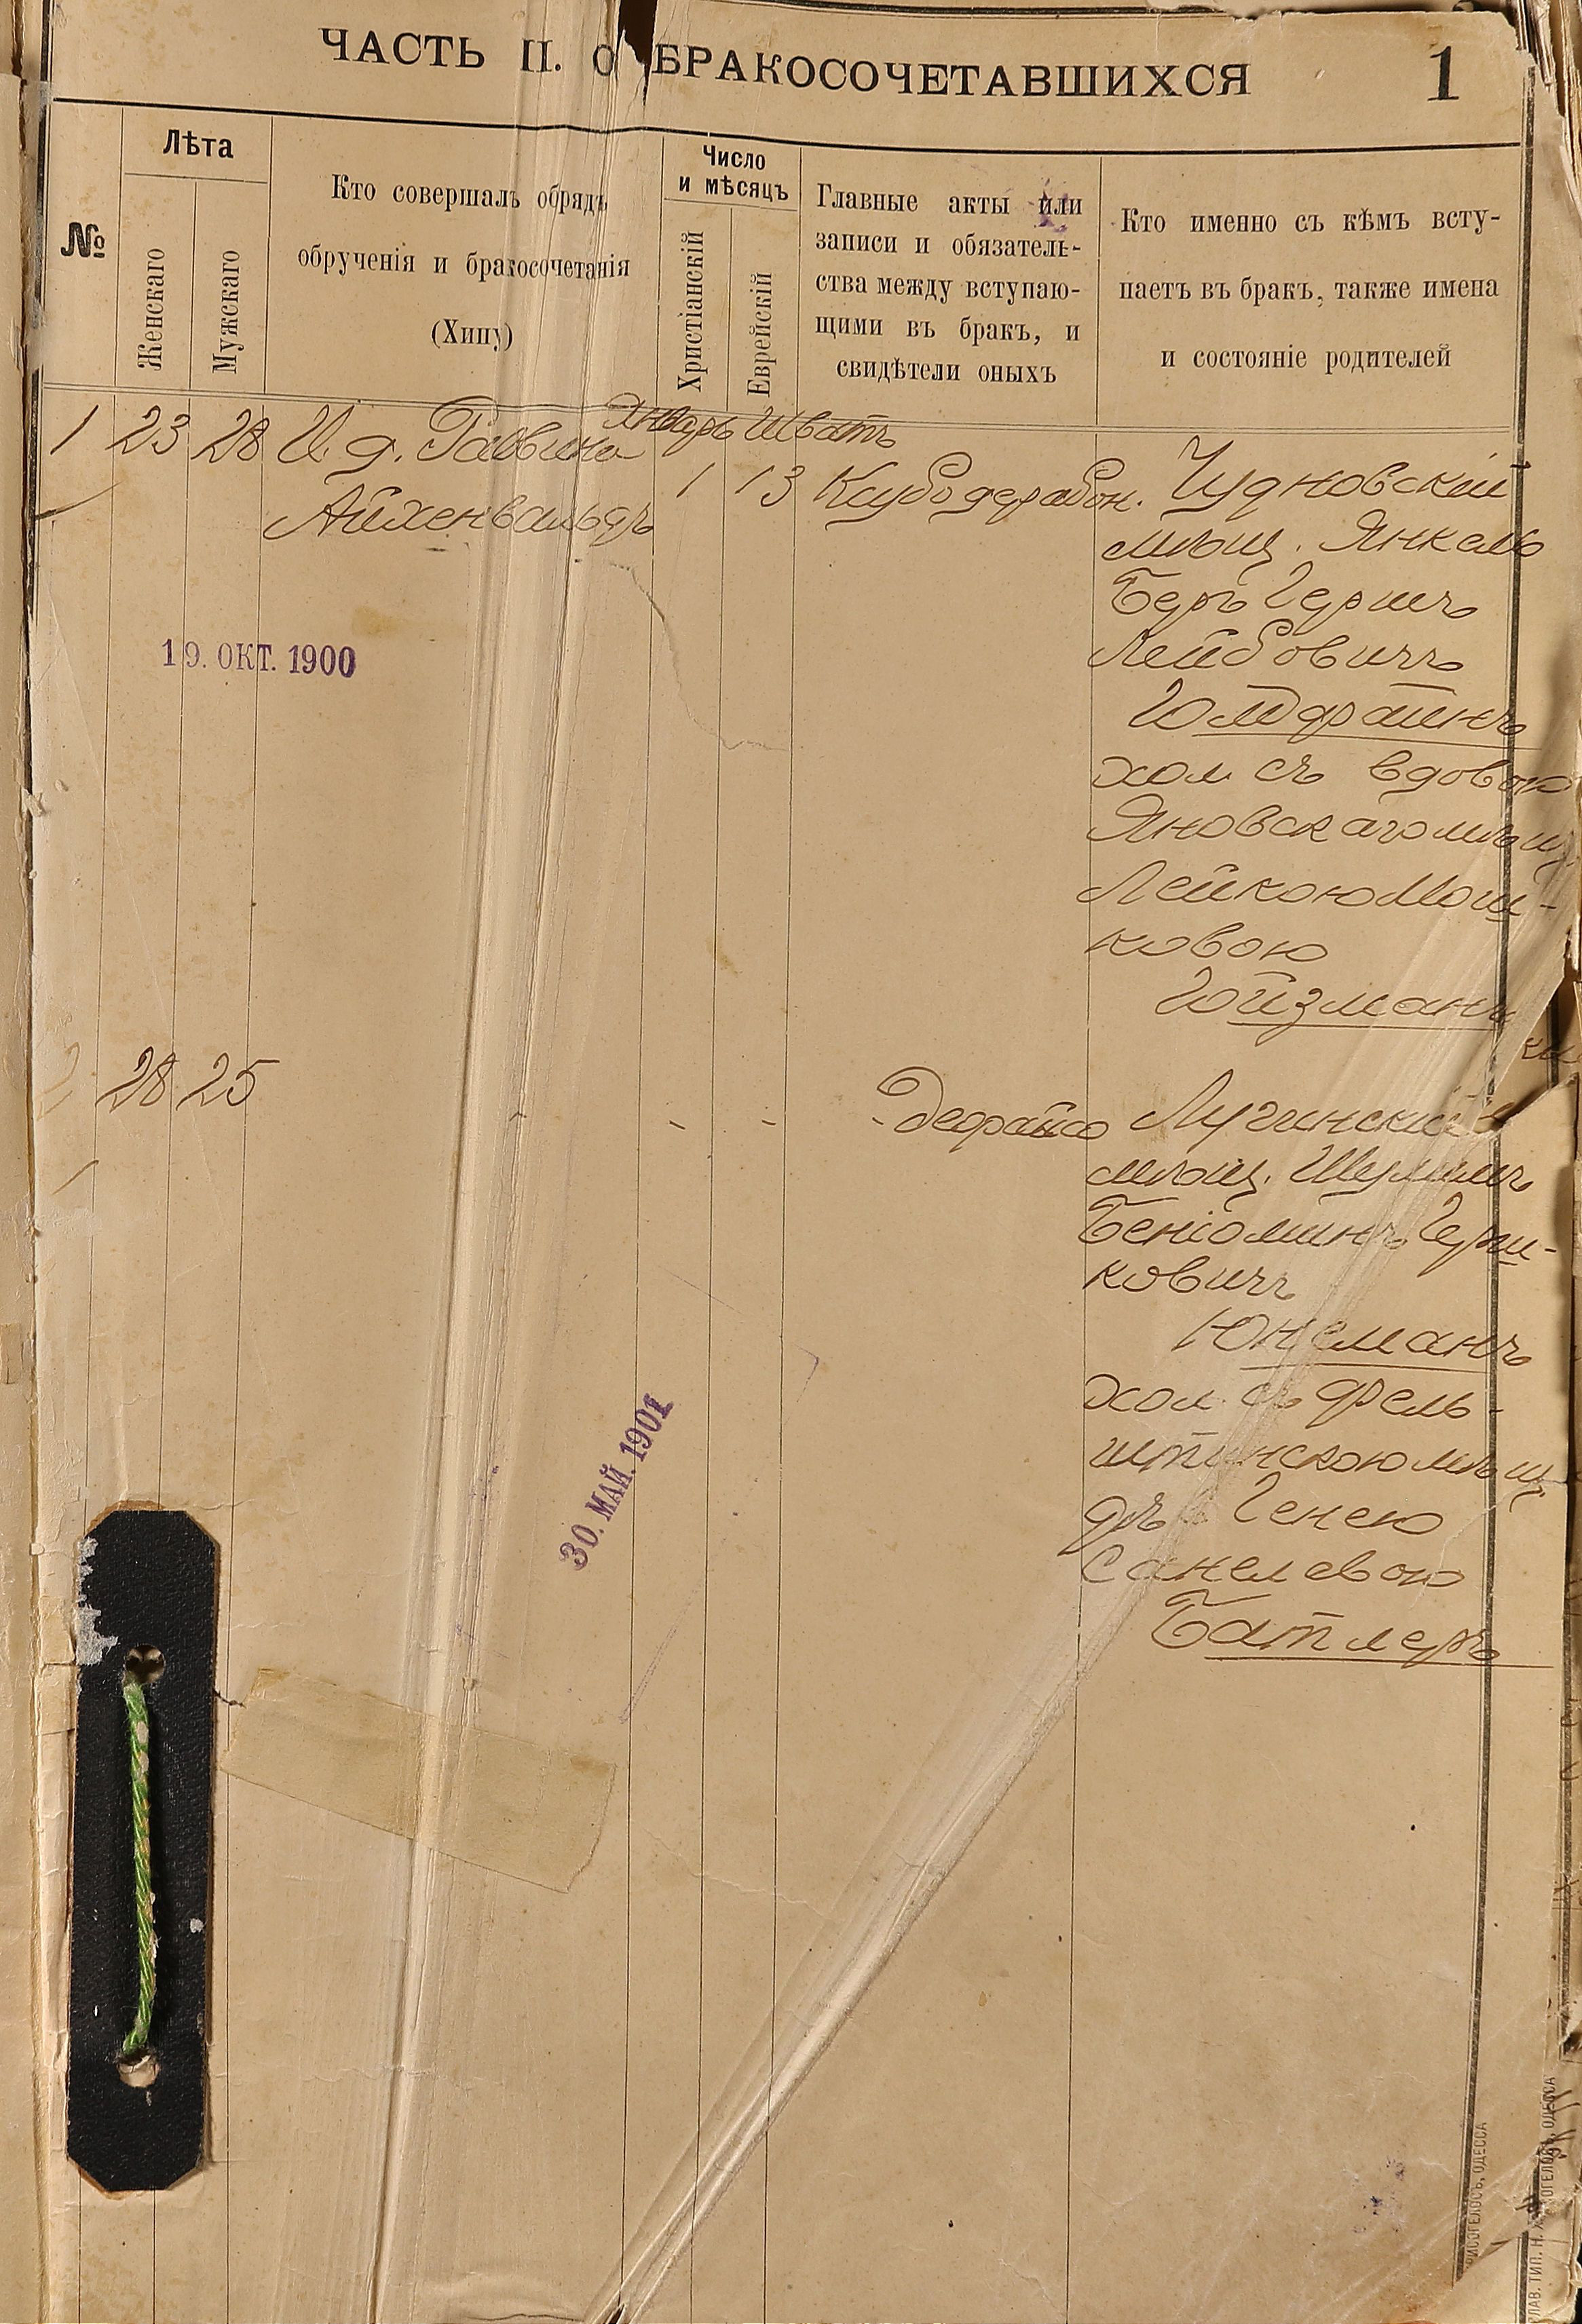 ЧАСТЬ II. О БРАКОСОЧЕТАВШИХСЯ
1
№
Лѣта
Женскаго
Мужскаго
Кто совершалъ обрядъ
обрученія и бракосочетанія
(Хипу)
Число
и мѣсяцъ
Христіанскій
Еврейскій
Главные акты или
записи и обязатель-
ства между вступаю-
щими въ бракъ, и
свидѣтели оныхъ
Кто именно съ кѣмъ всту-
паетъ въ бракъ, также имена
и состояніе родителей
Январь Шватъ
1 23 28 И. д. Раввина
Айхенвальдъ
1 13
Чудновскій
мѣщ. Янкель
Беръ Гершъ
Лейбовичъ
Голдфайнъ
хол. съ вдовою
Яновскаго мѣщ.
Лейкою Мош-
ковою
Гойзманъ
19. ОКТ. 1900
2 28 25
Лугинскій
мѣщ. Шулимъ
Беніоминъ Герш-
ковичъ
Юкелманъ
хол. съ Фель-
штинскою мѣщ.
дѣв. Генею
Санелевою
Батлеръ
30. МАЙ. 1901